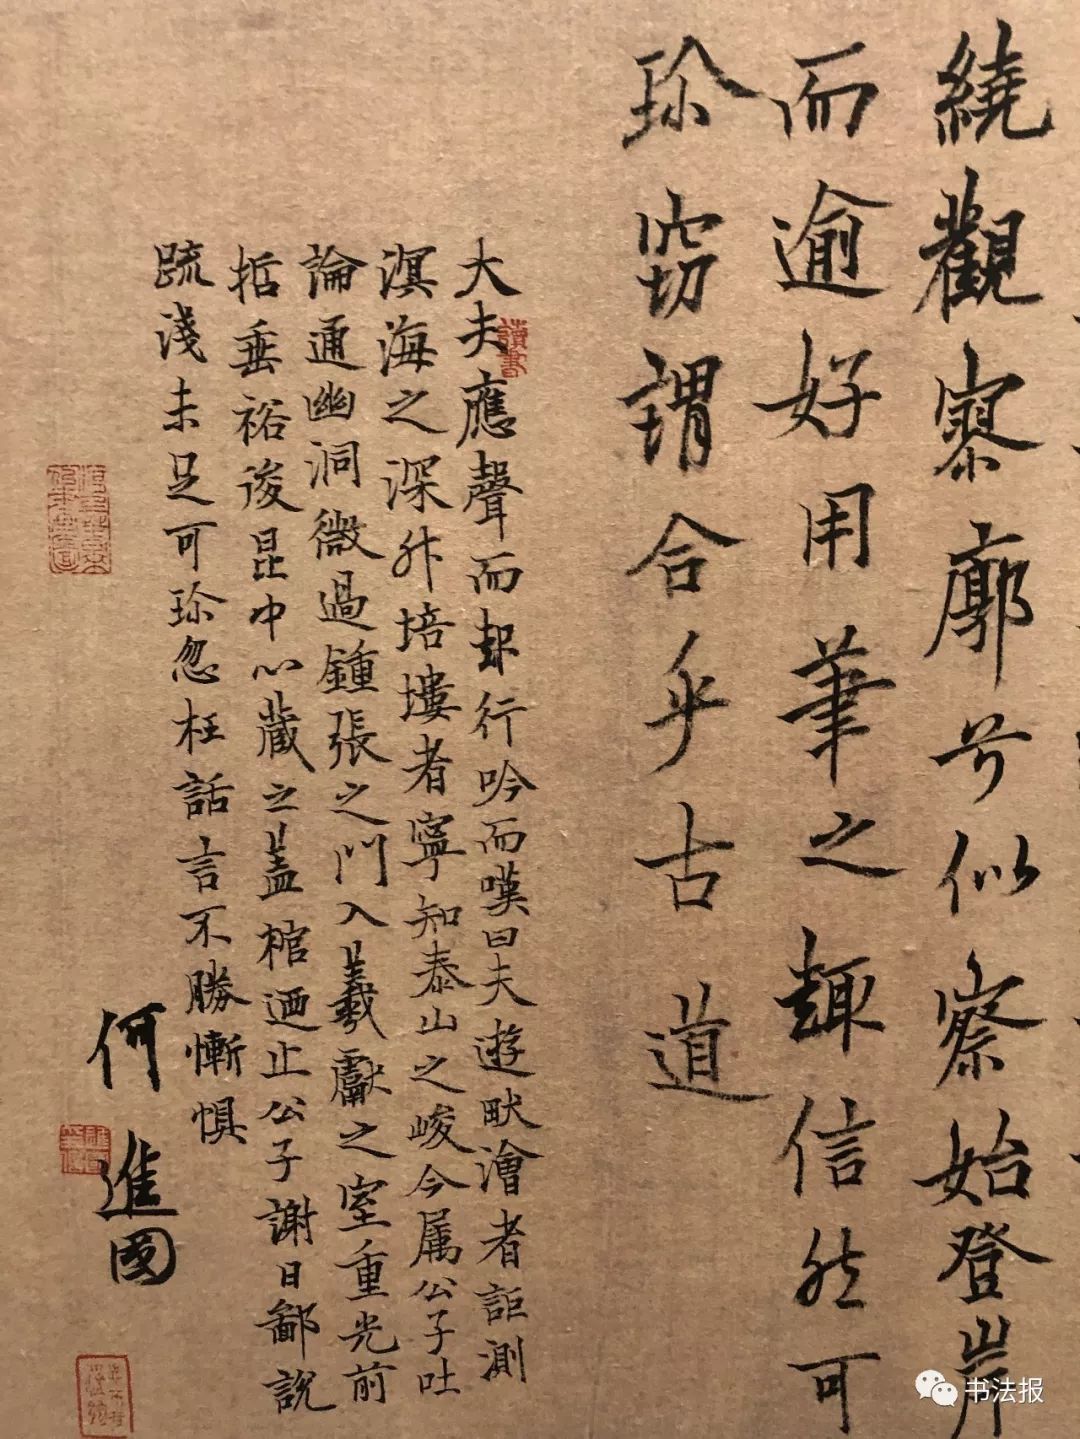 繞觀寥廓兮似察始登岸
而逾好用筆之趣信然可
珎竊謂合乎古道
大夫應聲而起行吟而嘆曰夫遊畎澮者詎測
溟海之深升培塿者寧知泰山之峻今属公子吐
論通幽洞微過鍾張之門入羲獻之室重光前
哲垂裕後昆中心藏之蓋棺迺止公子謝曰鄙說
疏淺未足可珎忽枉話言不勝慚惧
何進國
讀書
书法报